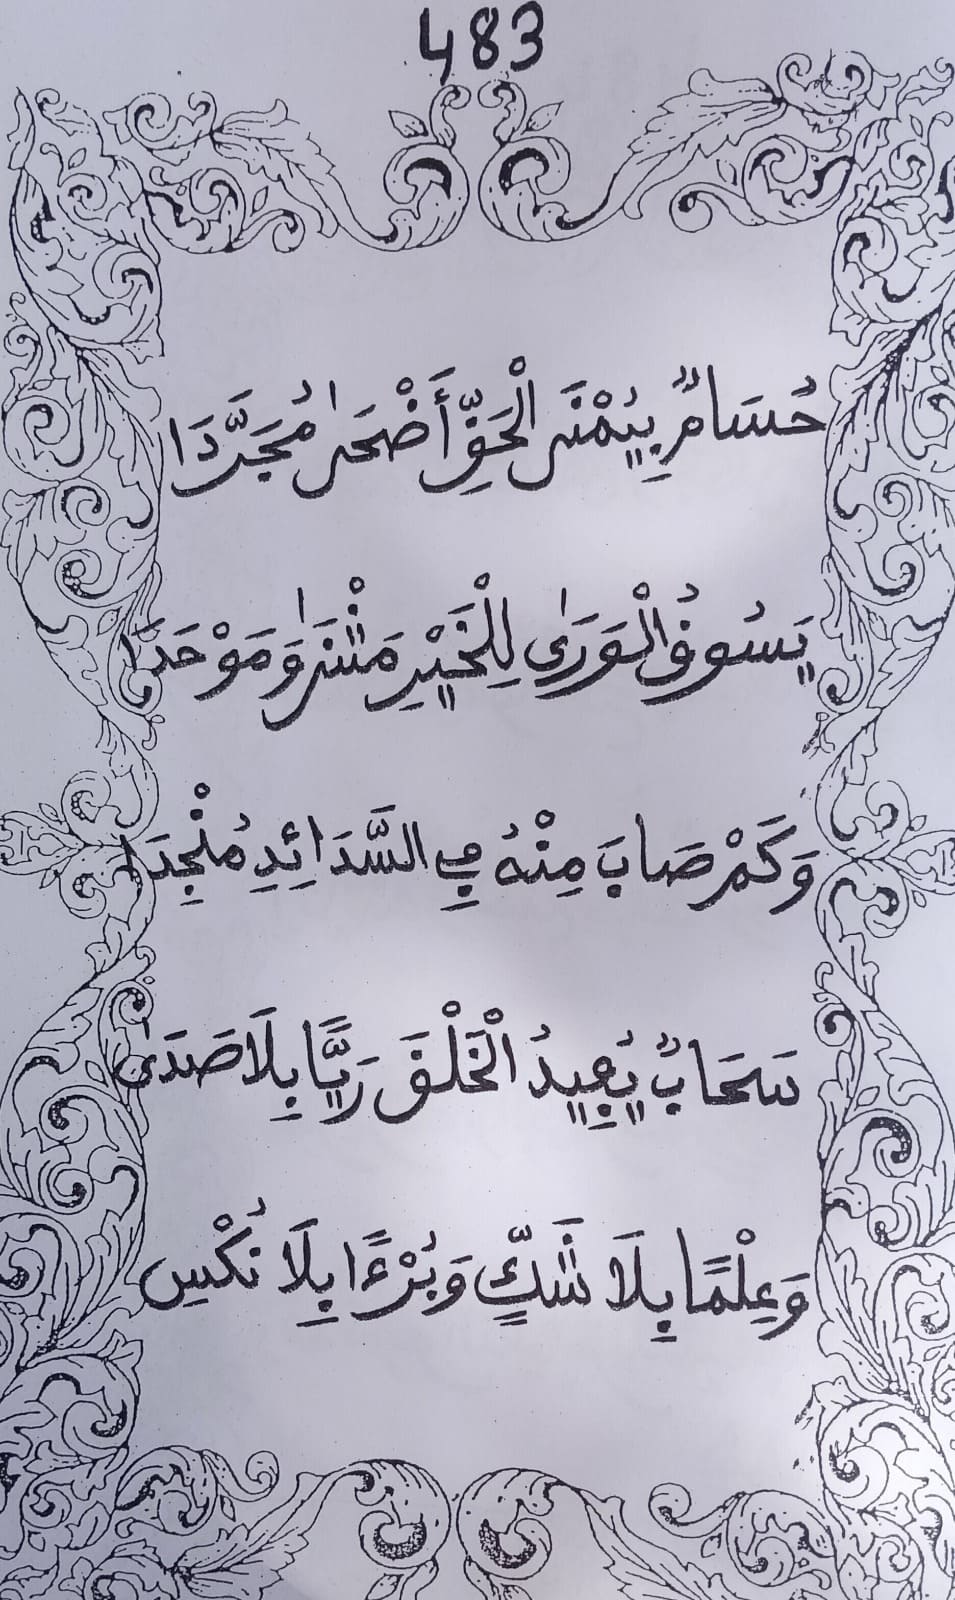 483
حُسَامٌ بِيُمْنَى الْحَقِّ أَضْحَىٰ مُجَرَّدَا
يَسُوقُ الْوَرَىٰ لِلْخَيْرِ مَثْنَىٰ وَمَوْحَدَا
وَكَمْ صَابَ مِنْهُ فِي السَّدَائِدِ مُنْجِدَا
سَحَابٌ يُفِيدُ الْخَلْقَ رَيًّا بِلَا صَدَىٰ
وَعِلْمًا بِلَا شَكٍّ وَبُرْءًا بِلَا نُكْسِ